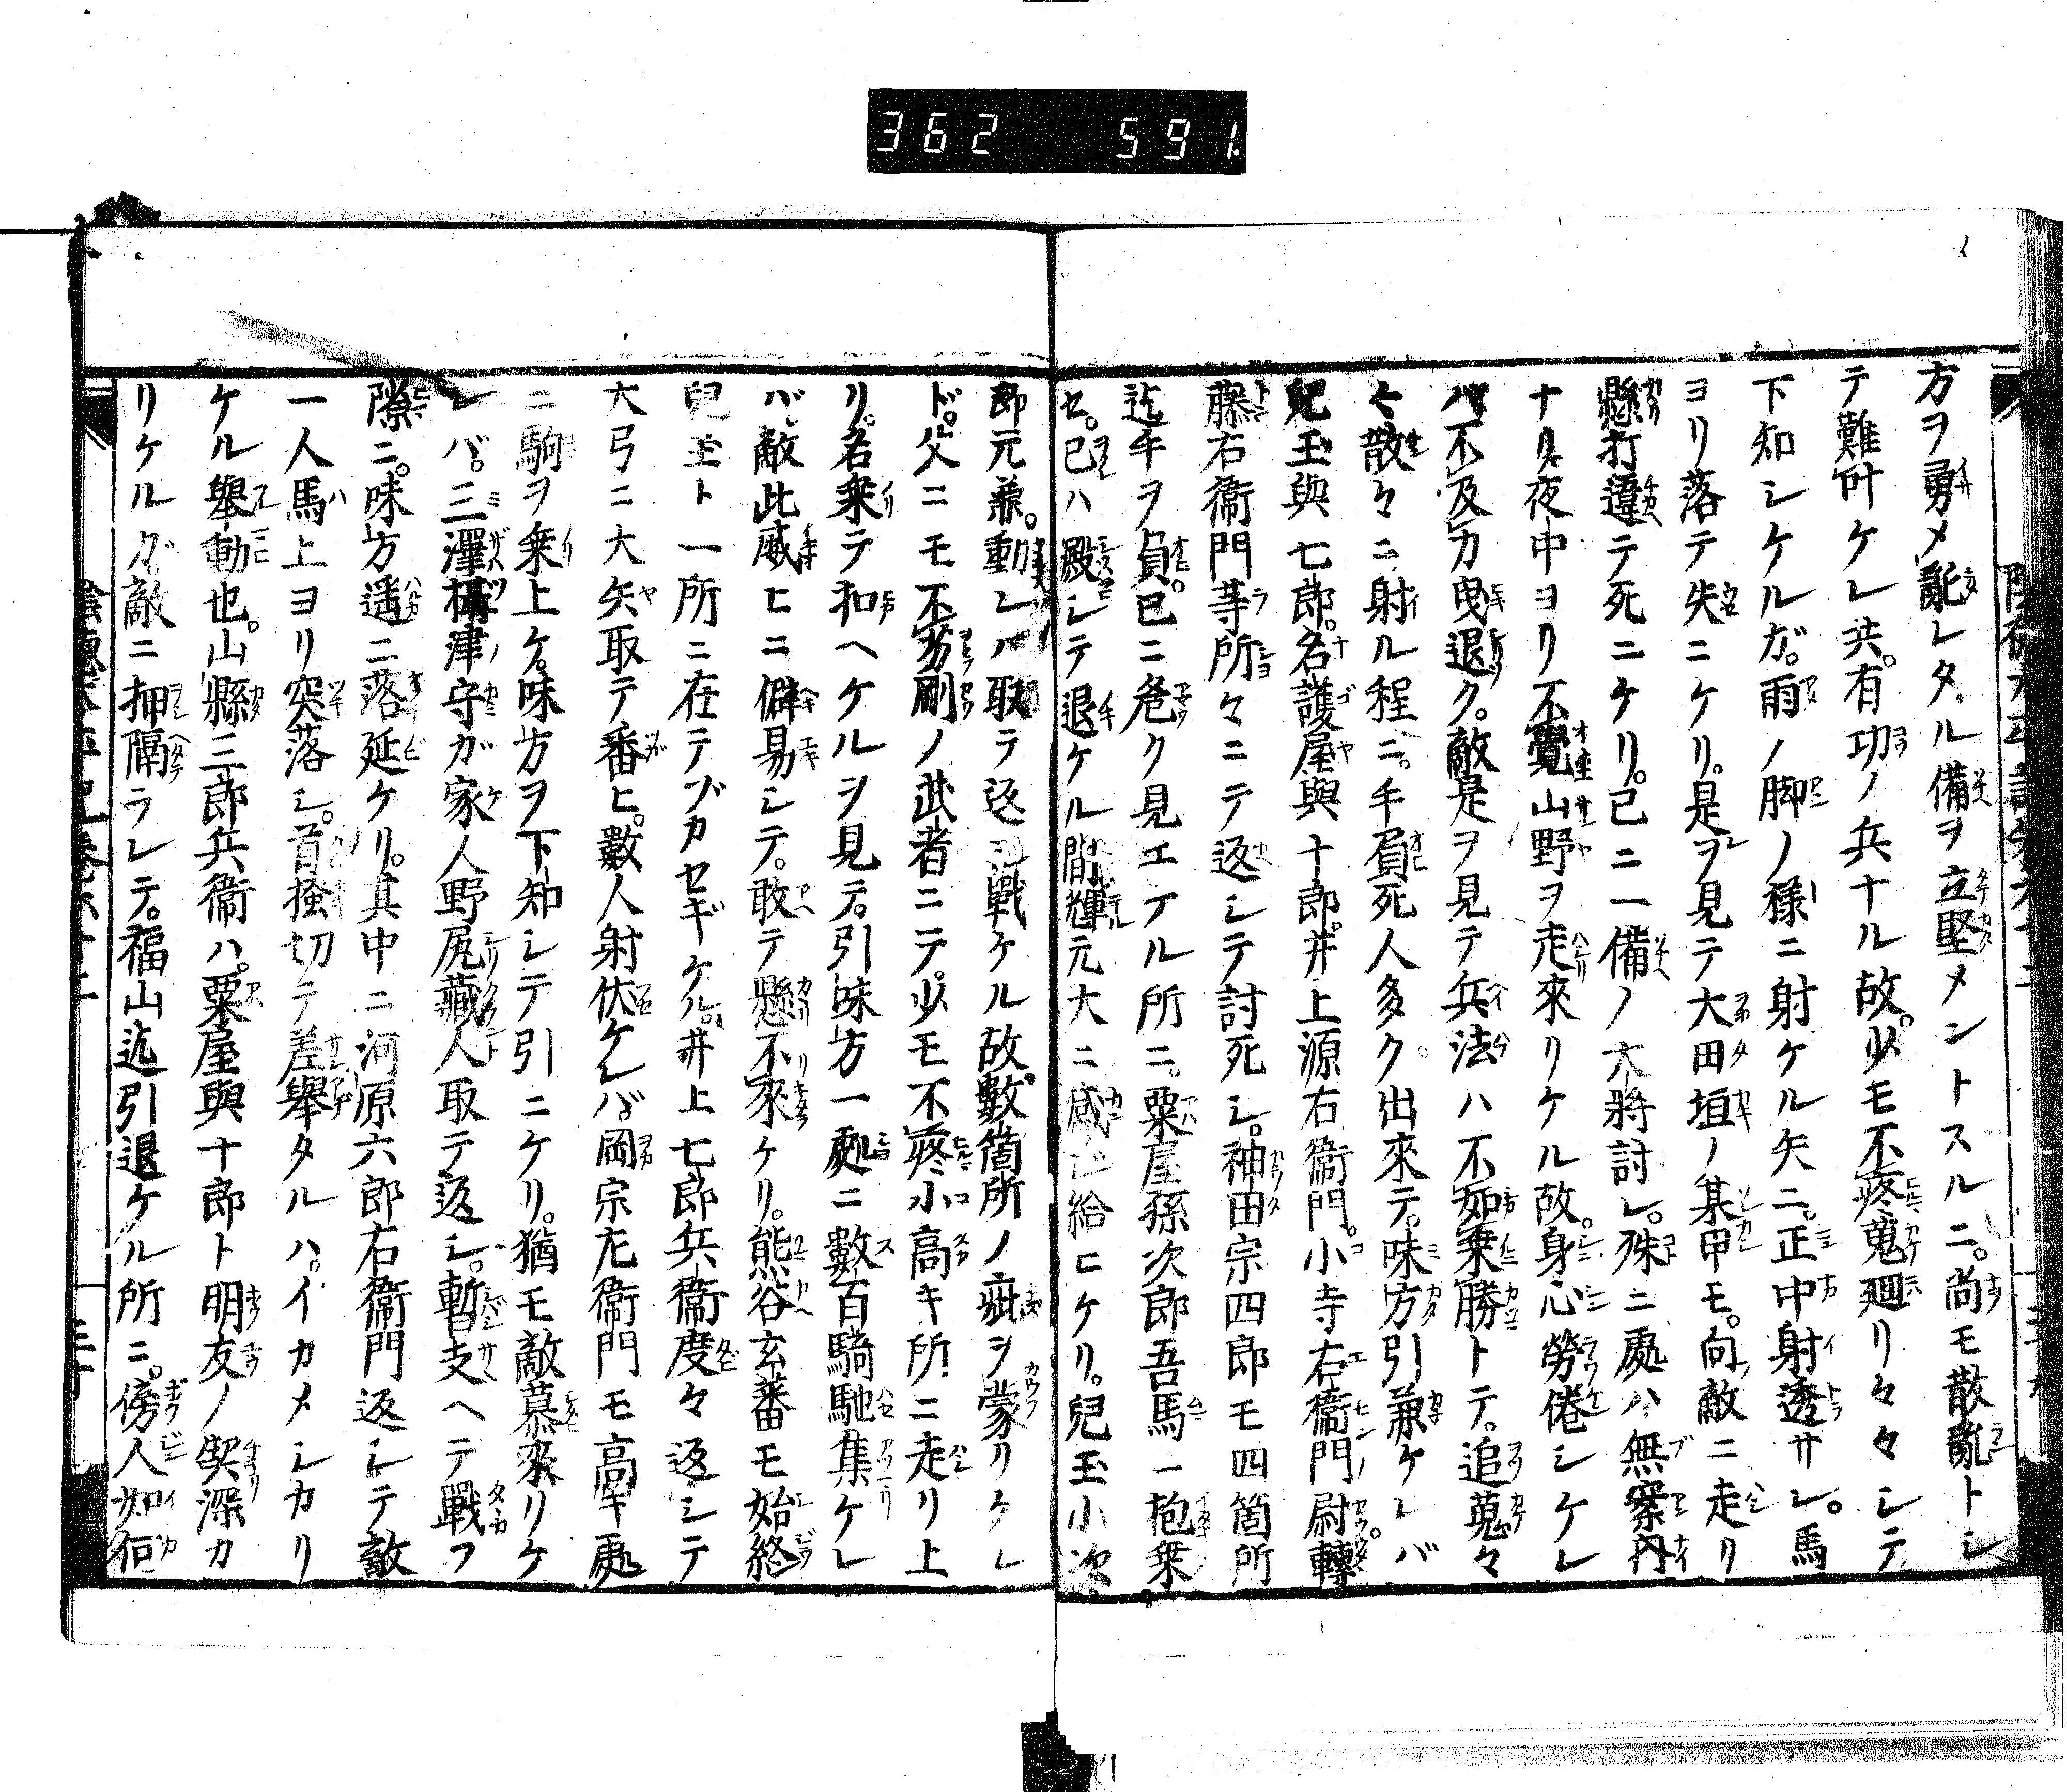 362 591
方ヲ勇メ亂レタル備ヲ立堅メントスルニ。尚モ散亂トシ
テ難叶ケレ共。有功ノ兵ナル故。少モ不疼蒐廻リ々々シテ
下知シケルガ。雨ノ脚ノ様ニ射ケル矢ニ。正中射透サレ。馬
ヨリ落テ失ニケリ。是ヲ見テ大田垣ノ某甲モ。向敵ニ走リ
懸打違テ死ニケリ。已ニ一備ノ大將討レ。殊ニ處ハ無案内
ナリ。夜中ヨリ不覺山野ヲ走來リケル故。身心勞倦シケレ
バ不及力曳退ク。敵是ヲ見テ兵法ハ不如乗勝トテ。追蒐々
々散々ニ射ル程ニ。手負死人多ク出來テ。味方引兼ケレバ
兒玉與七郎。名護屋與十郎。井上源右衞門。小寺右衞門尉轉
藤右衞門等所々ニテ返シテ討死シ。神田宗四郎モ四箇所
迄手ヲ負。已ニ危ク見エケル所ニ。粟屋孫次郎吾馬ニ抱乗
セ。已ハ殿シテ退ケル間。輝元大ニ感ジ給ヒケリ。兒玉小次
郎元兼。動レハ取テ返シ戰ケル故。數箇所ノ疵ヲ蒙リケレ
ド。父ニモ不劣剛ノ武者ニテ。少モ不疼小高キ所ニ走リ上
リ。名乗テ扣ヘケルヲ見テ。引味方一處ニ數百騎馳集ケレ
バ。敵此威ヒニ僻易シテ。敢テ懸不來ケリ。熊谷玄蕃モ始終
兒玉ト一所ニ在テヅカセギケル。井上七郎兵衞度々返シテ
大弓ニ大矢取テ番ヒ。數人射伏ケレバ。岡宗左衞門モ高キ處
ニ駒ヲ乗上ケ。味方ヲ下知シテ引ニケリ。猶モ敵慕來リケ
レバ。三澤攝津守ガ家人野尻藏人取テ返シ。暫支ヘテ戰フ
際ニ。味方遥ニ落延ケリ。其中ニ河原六郎右衞門返シテ敵
一人馬上ヨリ突落シ。首搔切テ差舉タルハ。イカメシカリ
ケル舉動也。山縣三郎兵衞ハ。粟屋與十郎ト朋友ノ契深カ
リケルガ。敵ニ押隔ラレテ。福山迄引退ケル所ニ。傍人如何